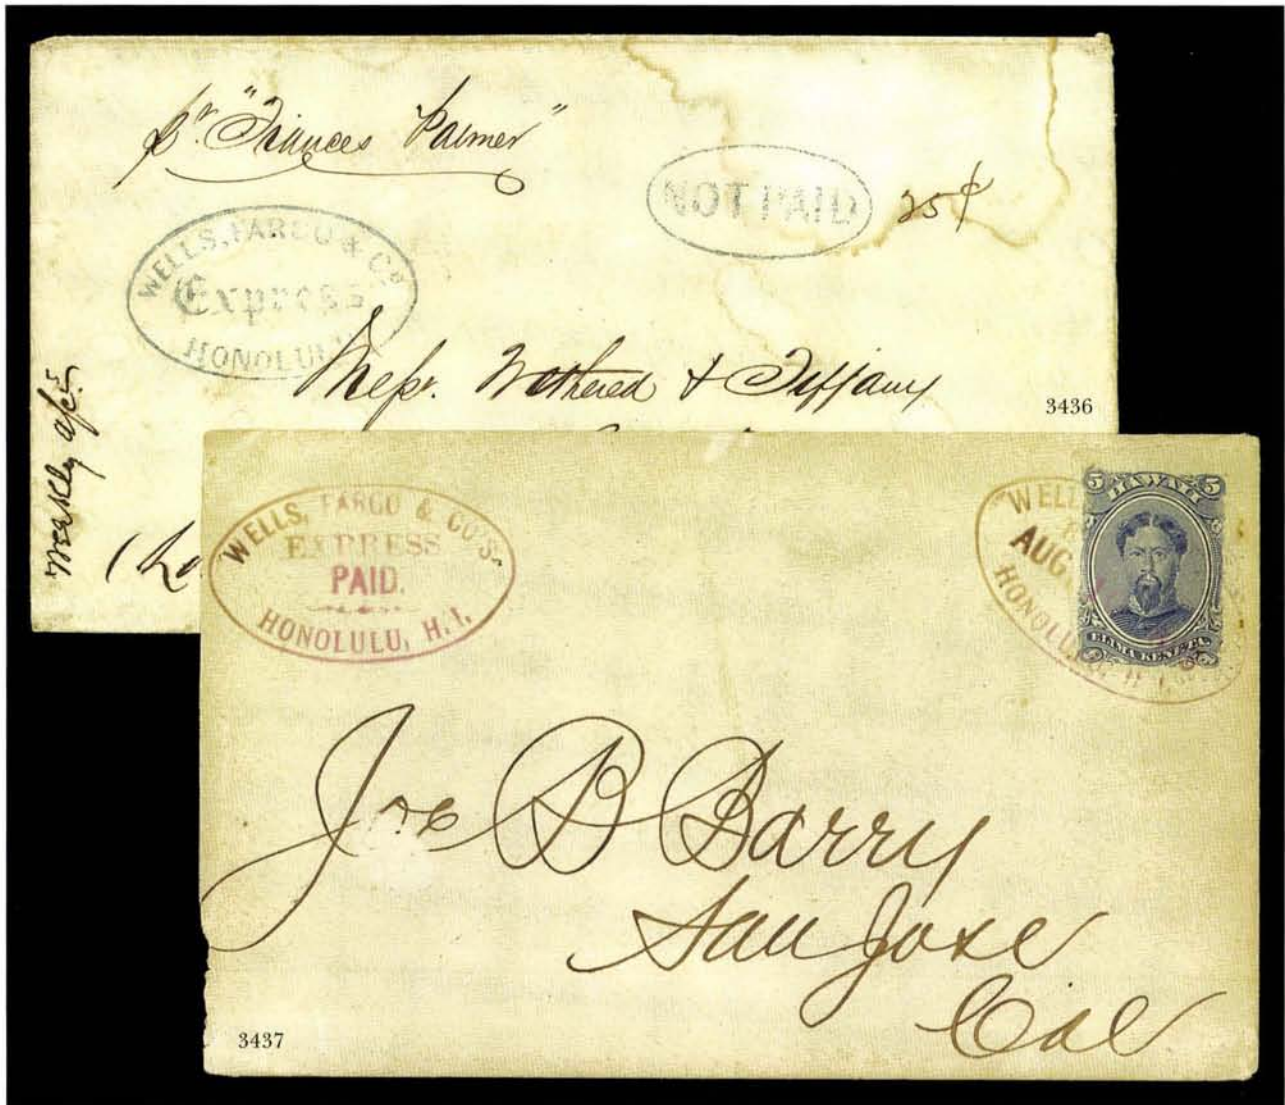 pr. "Frances Palmer"
NOT PAID
25¢
WELLS, FARGO & Co
Express
HONOLULU
Messr. Wethered & Tiffany
3436
Weekly
WELLS, FARGO & CO'S
EXPRESS
PAID.
HONOLULU, H.I.
WELL
AUG.
HONOLULU, H.I.
5 HAWAII 5
ELIMA KENETA
Jno B Barry
San Jose
Cal
3437